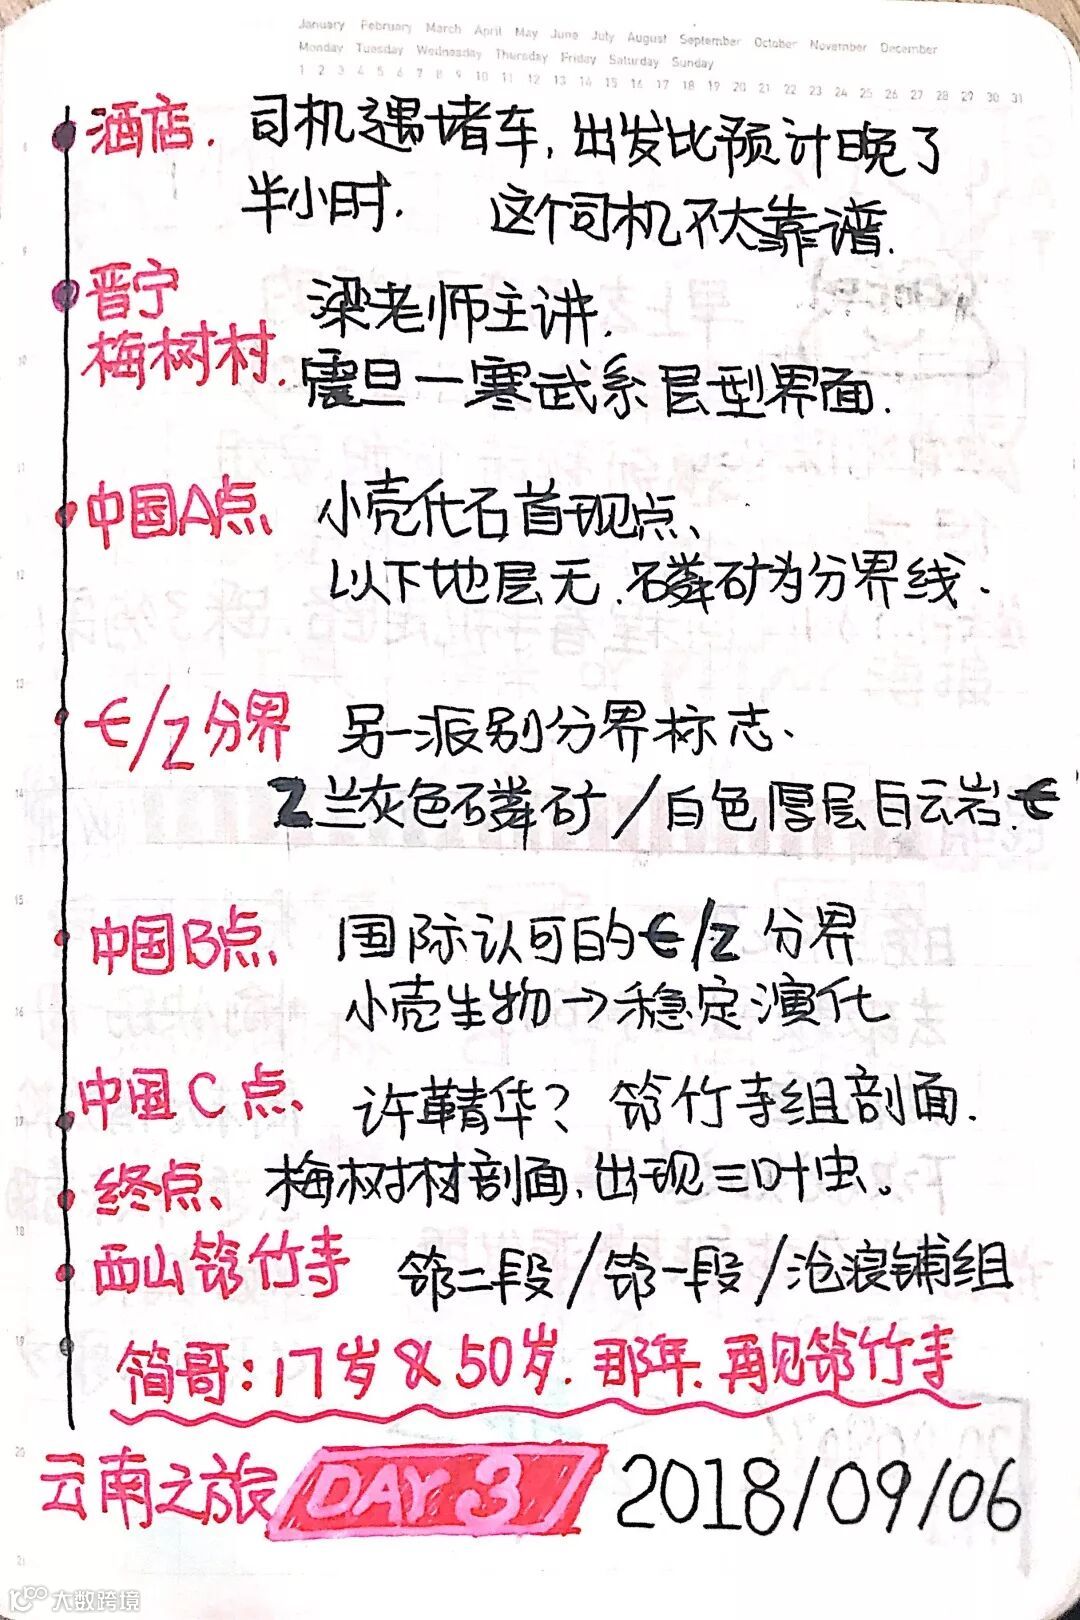 January February March April May June July August September October November December
Monday Tuesday Wednesday Thursday Friday Saturday Sunday
1 2 3 4 5 6 7 8 9 10 11 12 13 14 15 16 17 18 19 20 21 22 23 24 25 26 27 28 29 30 31
酒店. 司机遇堵车, 出发比预计晚了
半小时. 这个司机不大靠谱.
晋宁 梁老师主讲.
梅树村. 震旦—寒武系层型界面.
中国A点、 小壳化石首现点、
以下地层无. 磷矿为分界线.
€/Z分界 另一派别分界标志、
Z兰灰色磷矿/白色厚层白云岩.€
中国B点、 国际认可的€/Z分界
小壳生物→稳定演化
中国C点、 许菁华? 筇竹寺组剖面.
终点、 梅树村剖面.出现三叶虫。
西山筇竹寺 筇二段/筇一段/沧浪铺组
简哥:17岁&50岁.那年.再见筇竹寺
云南之旅 DAY 3 2018/09/06
大数跨境